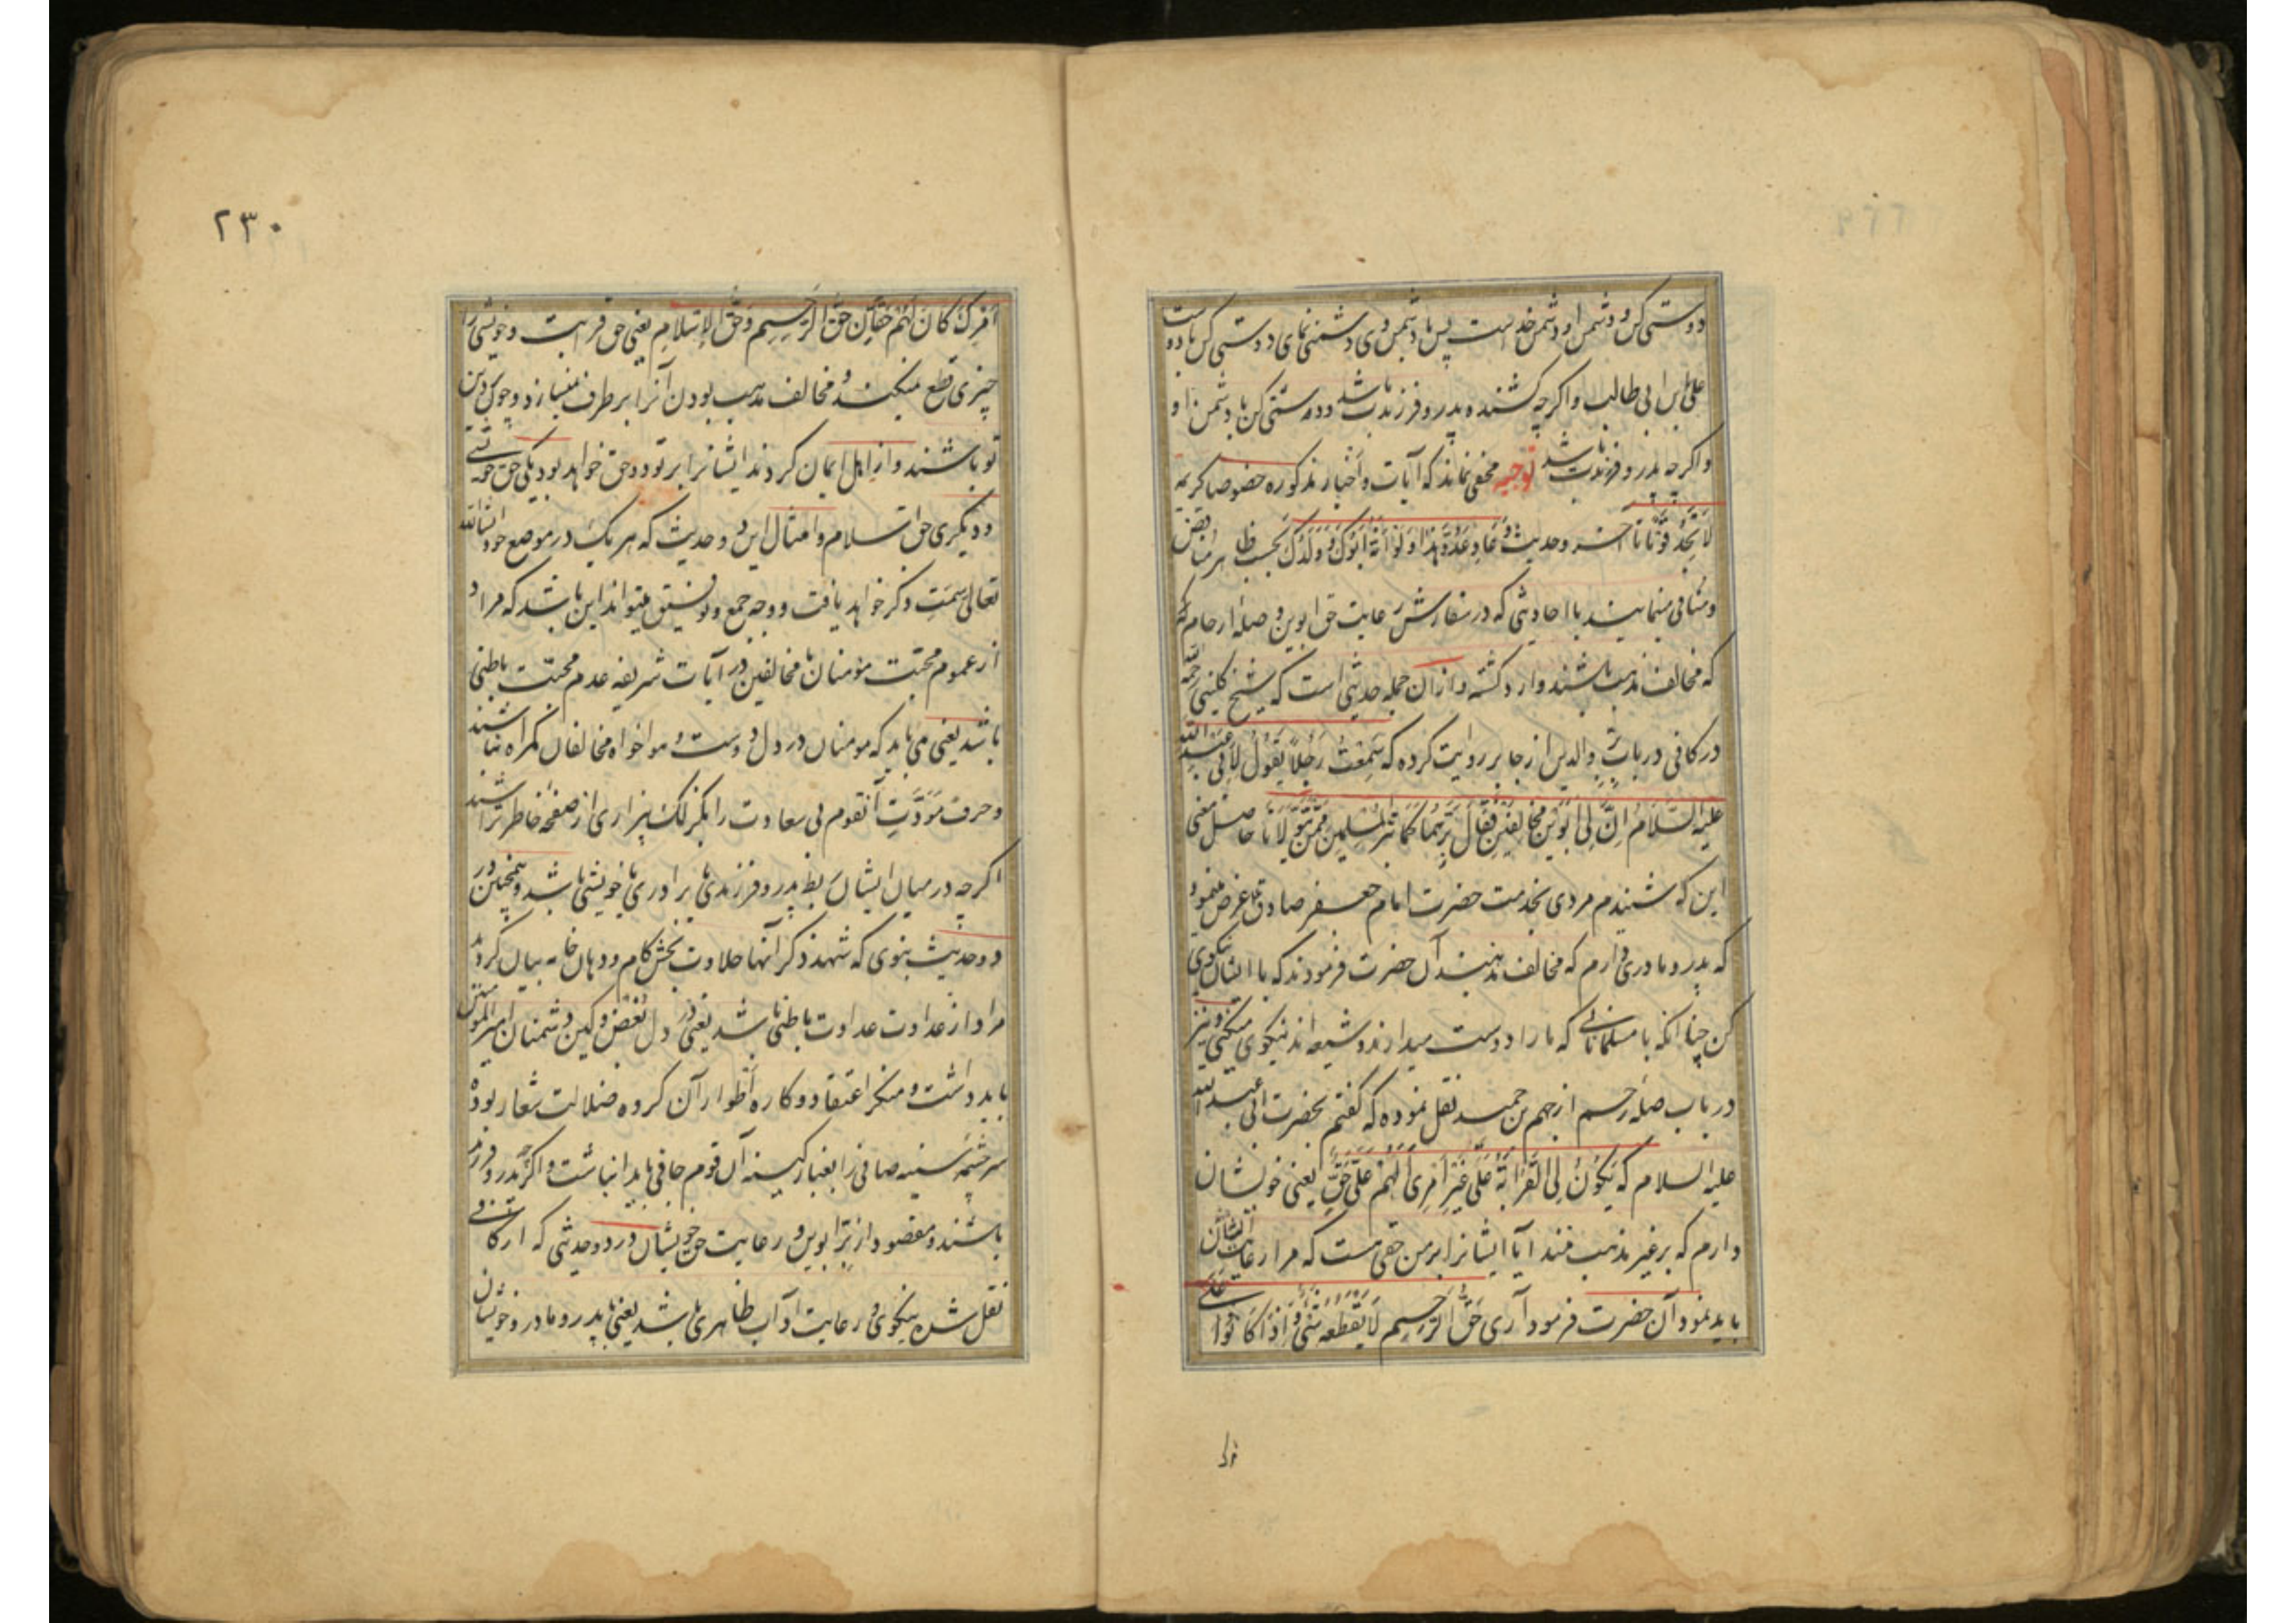 دوستی کن و دشمن او دشمن خداست پس با دشمن وی دشمنی نمای و دوستی کن با دوست
علی ابن ابی طالب و اگرچه کشنده پدر و فرزندت باشد و دشمنی کن با دشمن او
و اگرچه پدر و فرزندت باشد توجیه مخفی نماند که آیات و اخبار مذکوره خصوصا کریمه
لَا تَجِدُ قَوْمًا تا آخر و حدیث وَعَادِ عَدُوَّ هٰذَا وَلَوْ اَنَّهُ اَبُوكَ وَ وَلَدُكَ بحسب ظاهر مناقض
و منافی مینمایند با احادیثی که در سفارش رعایت حق ابوین و صله ارحام
که مخالف مذهب باشند وارد گشته و از آن جمله حدیثی است که شیخ کلینی رحمه الله
در کافی در باب بِرّ والدین از جابر روایت کرده که سَمِعْتُ رَجُلًا يَقُولُ لِاَبِي عَبْدِ اللّٰه
عَلَيْهِ السَّلَامُ اِنَّ لِی اَبَوَیْنِ مُخَالِفَیْنِ فَقَالَ بِرَّهُمَا كَمَا تَبِرُّ الْمُسْلِمِینَ مِمَّنْ یَتَوَلَّانَا حاصل معنی
این که شنیدم مردی بخدمت حضرت امام جعفر صادق ع عرض مینمود
که پدر و مادری دارم که مخالف مذهبند آن حضرت فرمودند که با ایشان نیکوی
کن چنانکه با مسلمانانی که ما را دوست میدارند و شیعه اند نیکوی میکنی و نیز
در باب صله رحم از جهم بن حمید نقل نموده که گفتم بحضرت ابی عبد الله
علیه السلام که یَكُونُ لِیَ الْقَرَابَةُ عَلَى غَیْرِ اَمْرِی اَلَهُمْ عَلَیَّ حَقٌّ یعنی خویشان
دارم که بر غیر مذهب منند آیا ایشانرا بر من حقی هست که مرا رعایت ایشان
باید نمود آن حضرت فرمود آری حَقُّ الرَّحِمِ لَا یَقْطَعُهُ شَیْءٌ وَ اِذَا كَانُوا عَلَى
۲۳۰
اَمْرِكَ كَانَ لَهُمْ حَقَّانِ حَقُّ الرَّحِمِ وَحَقُّ الْاِسْلَامِ یعنی حق قرابت و خویشی را
چیزی قطع نمیکند و مخالف مذهب بودن آنرا بر طرف نمیسازد و چون بر دین
تو باشند و از اهل ایمان گردند ایشانرا بر تو دو حق خواهد بود یکی حق خویشی
و دیگری حق اسلام و امثال این دو حدیث که هر یک در موضع خود انشا الله
تعالی سمت ذکر خواهد یافت و وجه جمع و توفیق میتواند این باشد که مراد
از عموم محبت مؤمنان با مخالفین در آیات شریفه عدم محبت باطنی
باشد یعنی می باید که مومنان در دل دوست و هواخواه مخالفان گمراه نباشند
و حرف مَوَدَّتِ آنقوم بی سعادت را بگزلک بیزاری از صفحه خاطر تراشند
اگرچه در میان ایشان ربط پدر و فرزندی یا برادری یا خویشی باشد و همچنین در
دو حدیث نبوی که شهد ذکر آنها حلاوت بخش کام و دهان خامه بیان گردید
مراد از عداوت عداوت باطنی باشد یعنی در دل بغض و کین دشمنان امیر المؤمنین
باید داشت و منکر اعتقاد و کاره اطوار آن گروه ضلالت شعار بوده
سرچشمه سینه صافی را بغبار کینه آن قوم جافی باید انباشت و اگرچه پدر و فرزند
باشند و مقصود از بِرّ ابوین و رعایت حق خویشان در دو حدیثی که از کافی
نقل شده نیکوی و رعایت آداب ظاهری باشد یعنی با پدر و مادر و خویشان